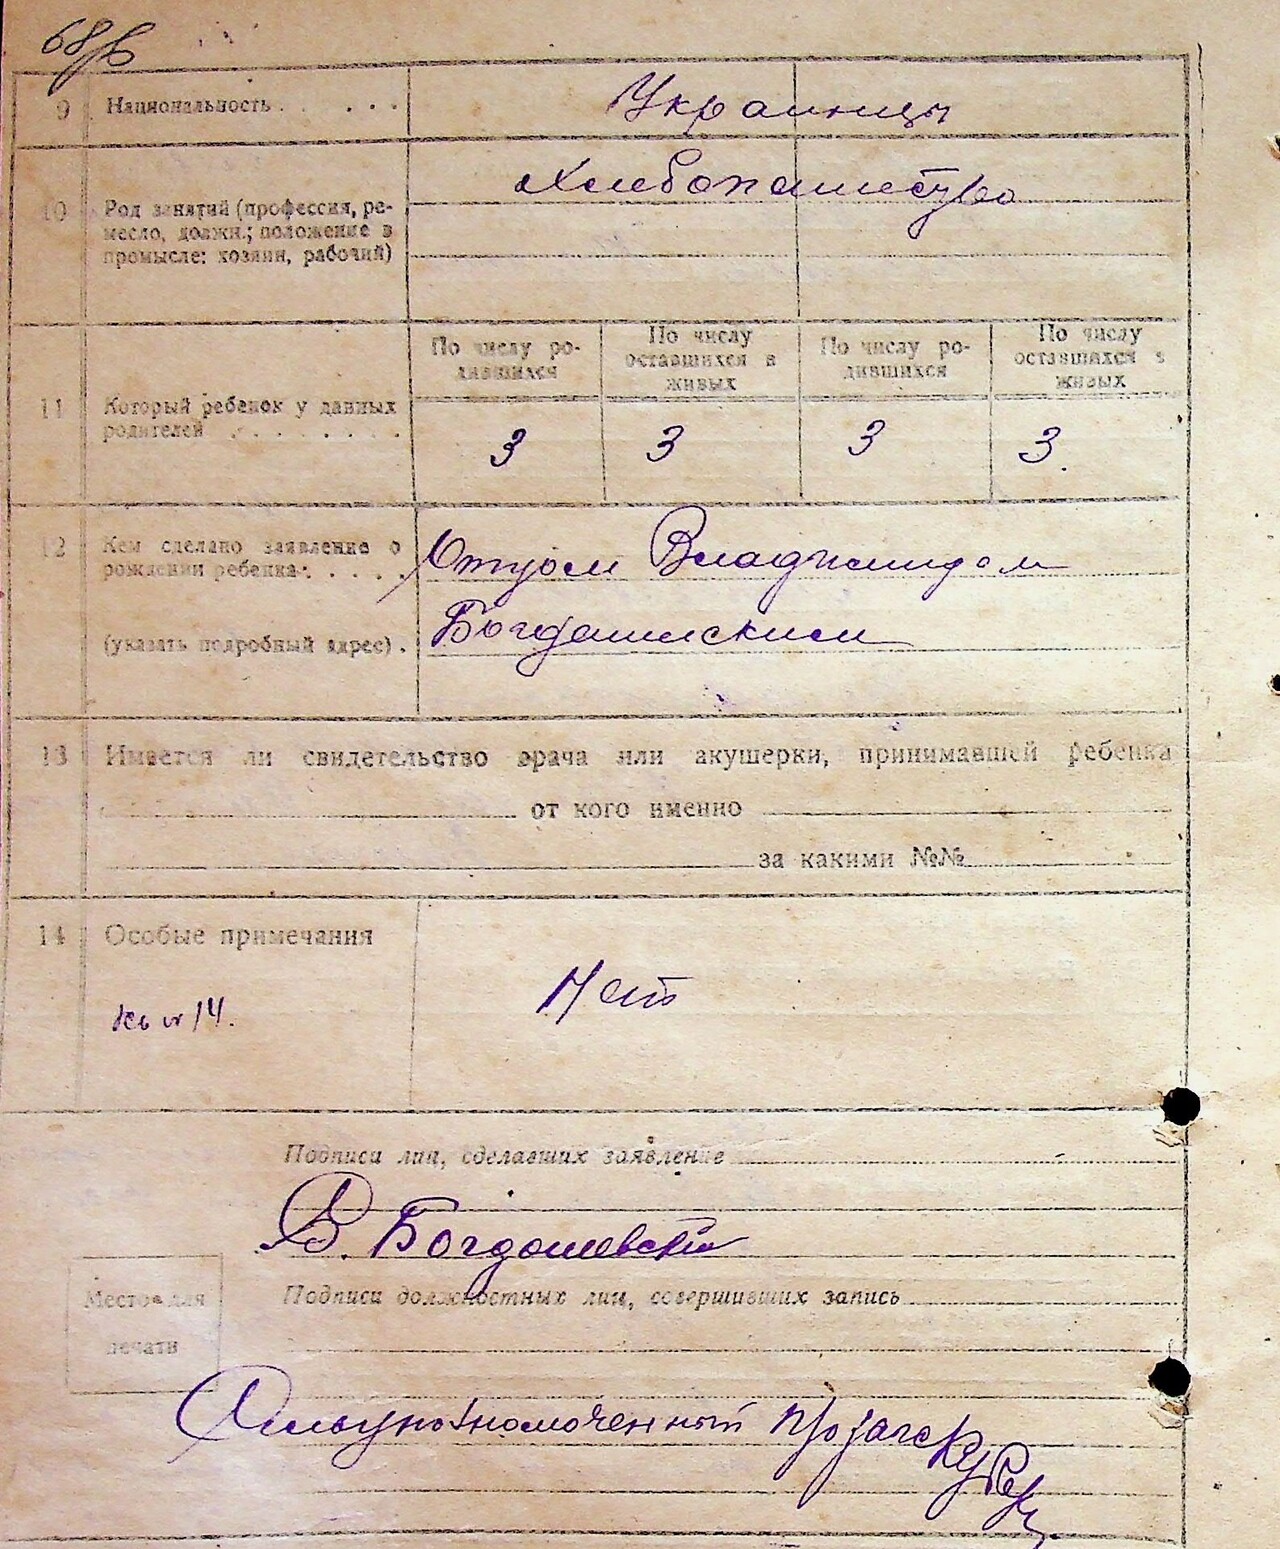 68
9 Национальность . . . . . Украинцы
Хлебопашество
10 Род занятий (профессия, ре-
месло, должн.; положение в
промысле: хозяин, рабочий)
По числу ро-
дившихся
По числу
оставшихся в
живых
По числу ро-
дившихся
По числу
оставшихся в
живых
11 Который ребенок у данных
родителей . . . . . . . .
3 3 3 3.
12 Кем сделано заявление о
рождении ребенка . . . .
Отцом Владимиром
(указать подробный адрес) .
Богдашевским
13 Имеется ли свидетельство врача или акушерки, принимавшей ребенка
от кого именно
за какими №№
14 Особые примечания
Нет
14.
Подписи лиц, сделавших заявление
В. Богдошевский
Подписи должностных лиц, совершивших запись
Место для
печати